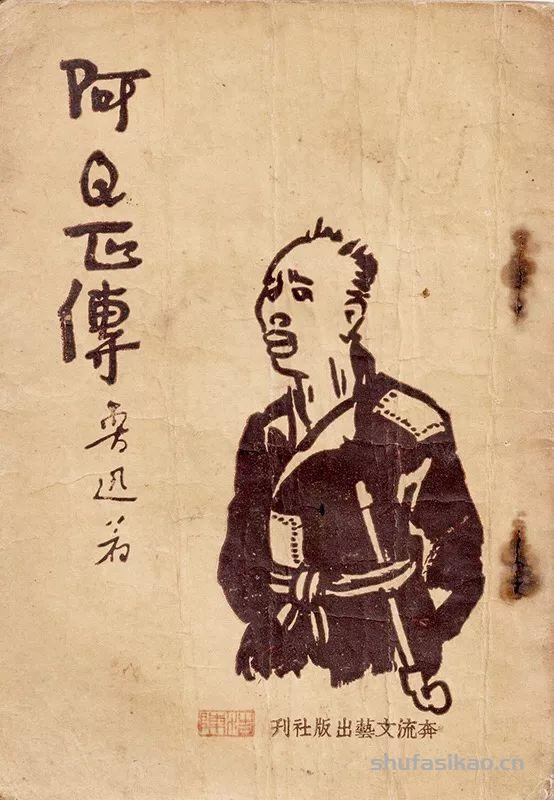 阿Q正傳
魯迅著
奔流文藝出版社刊
shufasikao.cn